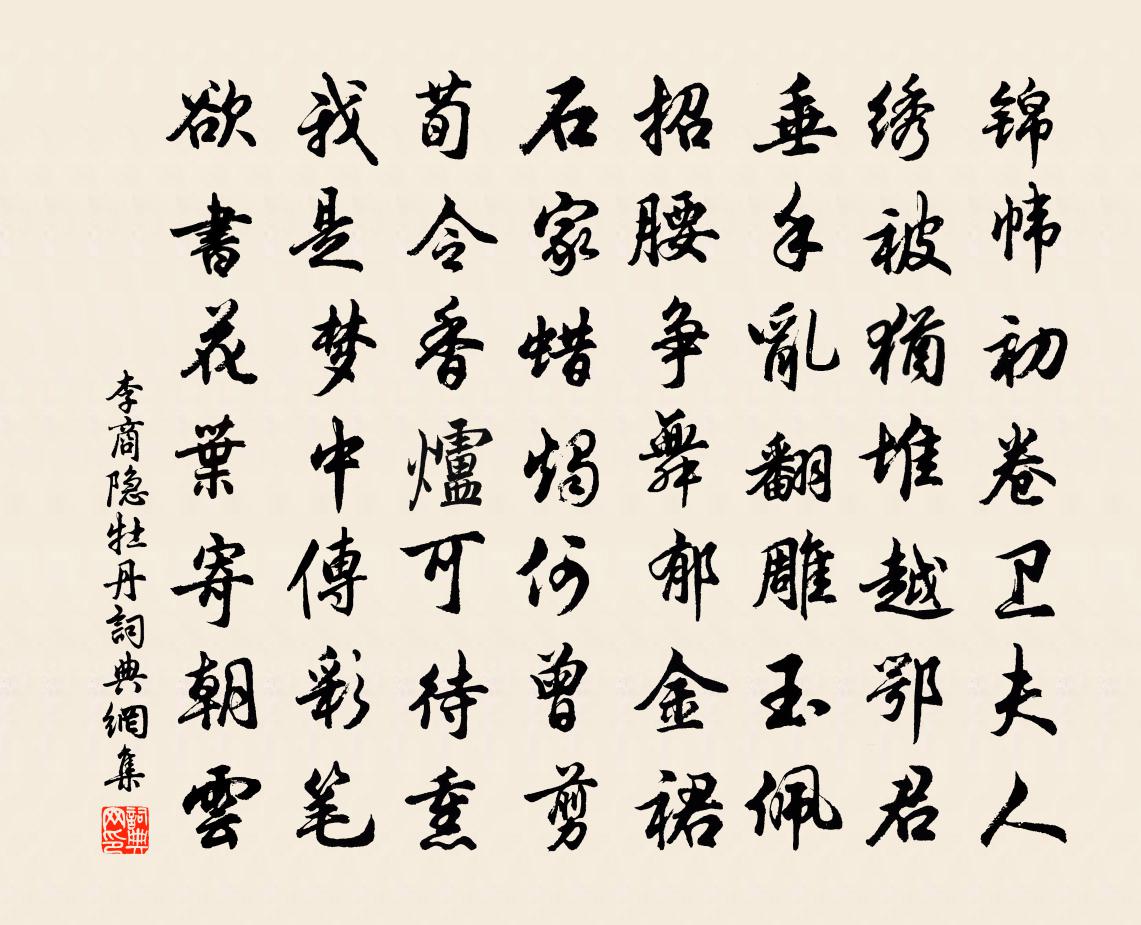 锦帏初卷卫夫人
绣被犹堆越鄂君
垂手亂翻雕玉佩
招腰争舞郁金裙
石家蜡烛何曾剪
荀令香爐可待熏
我是梦中傳彩笔
欲書花葉寄朝雲
李商隐牡丹詞典網集
詞典网印